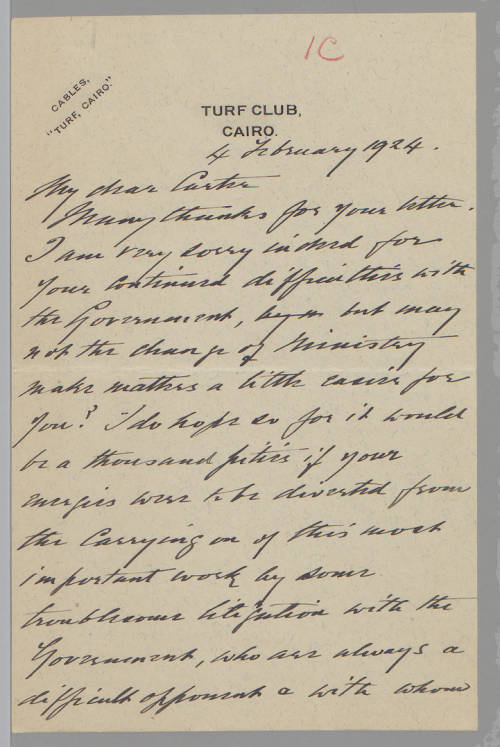 1C
CABLES,
"TURF, CAIRO."
TURF CLUB,
CAIRO.
4 February 1924.
My dear Carter
Many thanks for your letter.
I am very sorry indeed for
your continued difficulties with
the Government, but may
not the change of Ministry
make matters a little easier for
you? I do hope so for it would
be a thousand pities if your
energies were to be diverted from
the carrying on of this most
important work by some
troublesome litigation with the
Government, who are always a
difficult opponent & with whom